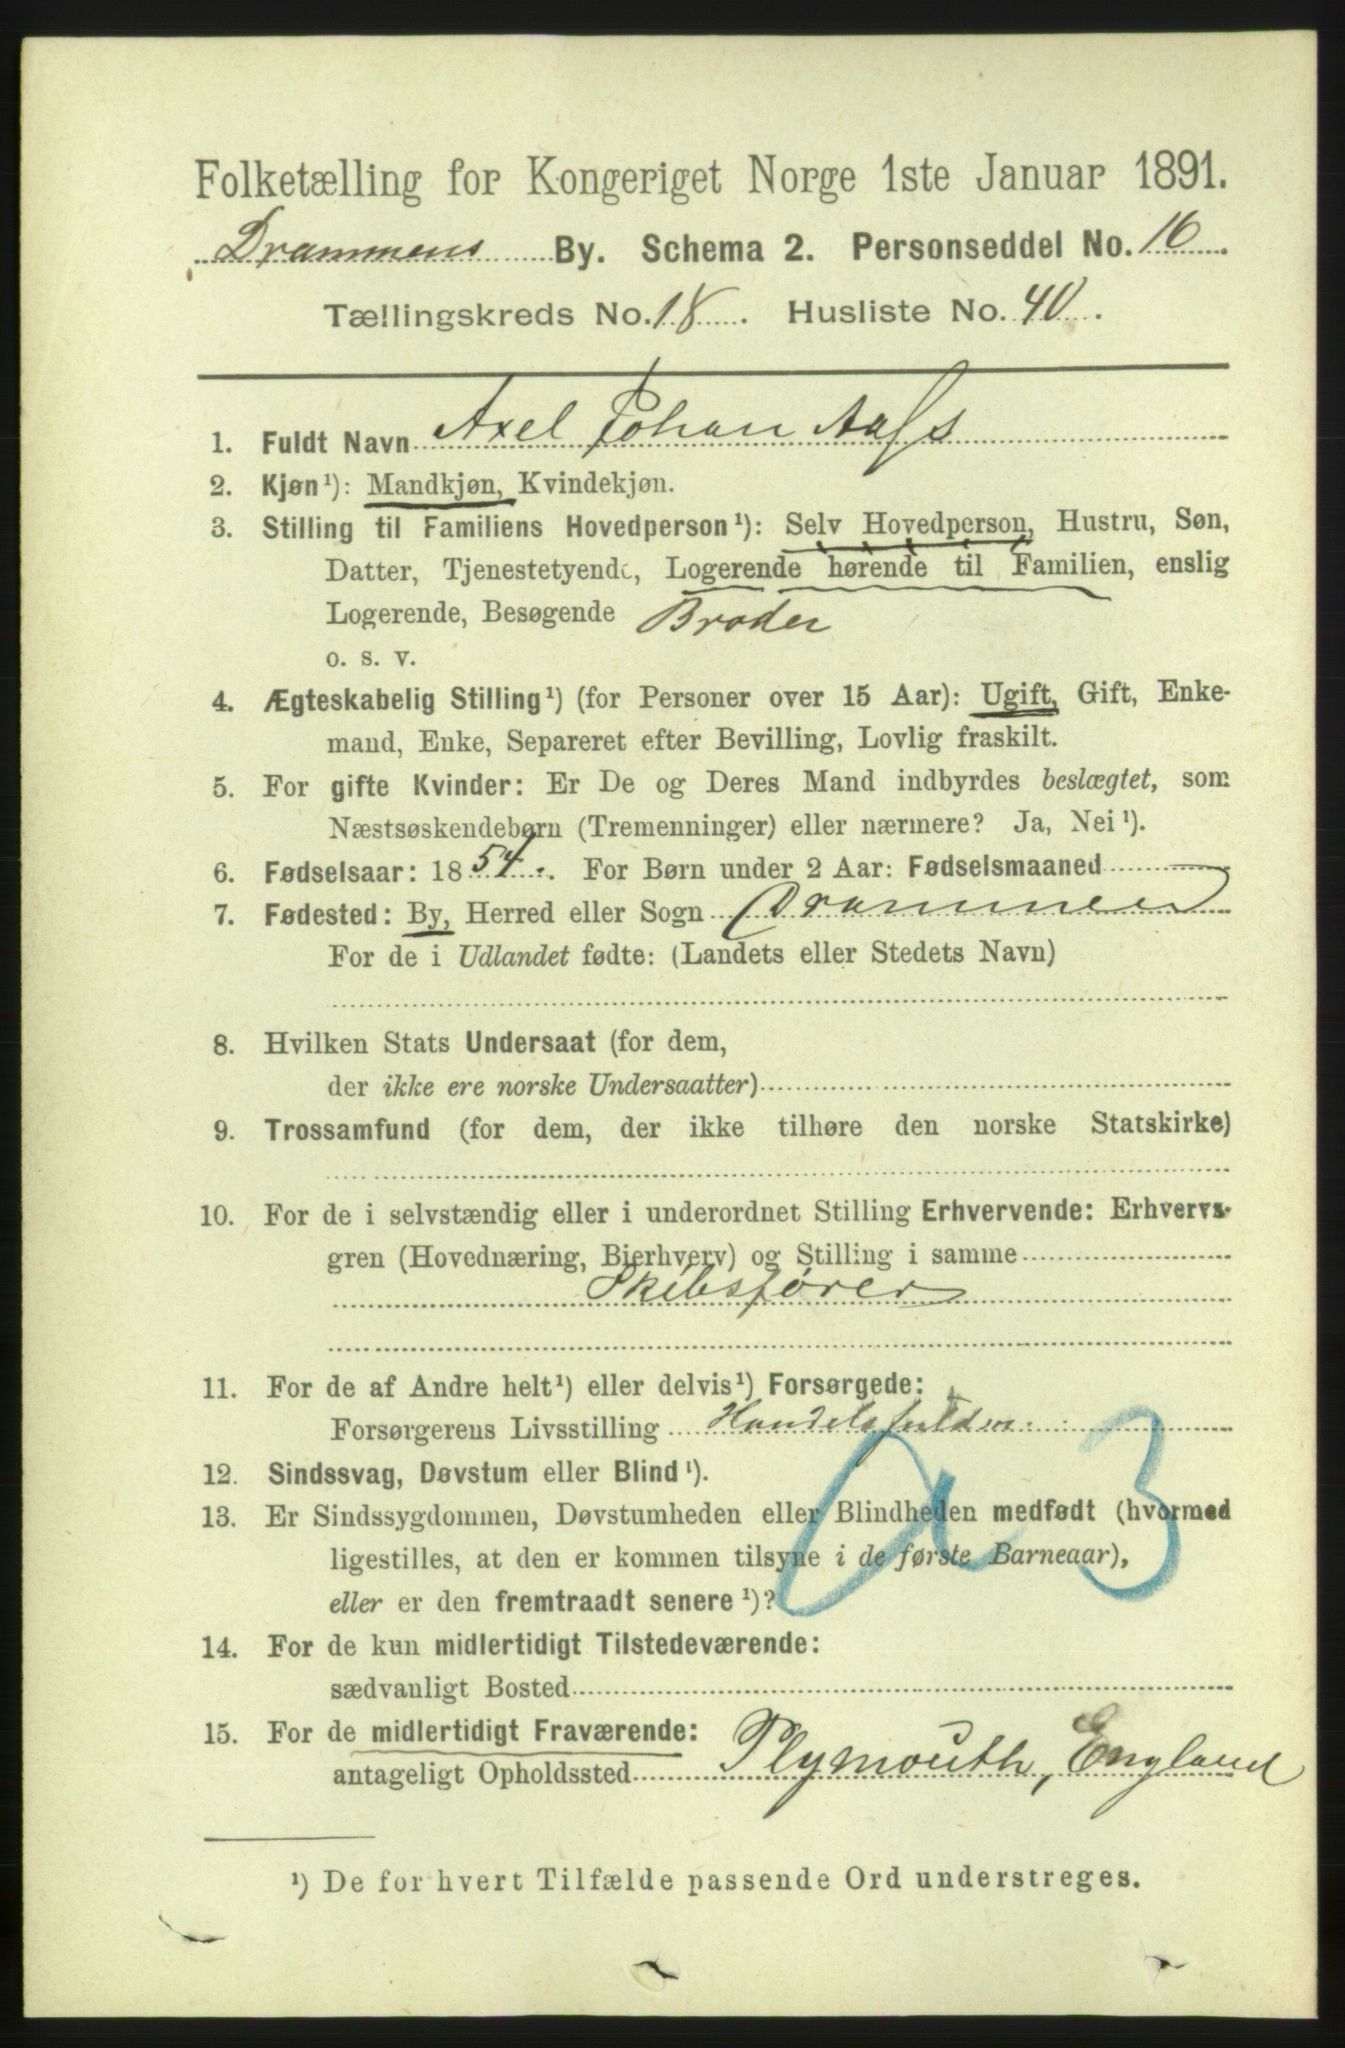 Folketælling for Kongeriget Norge 1ste Januar 1891.
Drammens By. Schema 2. Personseddel No. 16
Tællingskreds No. 18. Husliste No. 40.
1. Fuldt Navn Axel Johan Aass
2. Kjøn¹): Mandkjøn, Kvindekjøn.
3. Stilling til Familiens Hovedperson¹): Selv Hovedperson, Hustru, Søn,
Datter, Tjenestetyende, Logerende hørende til Familien, enslig
Logerende, Besøgende Broder
o. s. v.
4. Ægteskabelig Stilling¹) (for Personer over 15 Aar): Ugift, Gift, Enke-
mand, Enke, Separeret efter Bevilling, Lovlig fraskilt.
5. For gifte Kvinder: Er De og Deres Mand indbyrdes beslægtet, som
Næstsøskendebørn (Tremenninger) eller nærmere? Ja, Nei¹).
6. Fødselsaar: 1854. For Børn under 2 Aar: Fødselsmaaned
7. Fødested: By, Herred eller Sogn Drammen
For de i Udlandet fødte: (Landets eller Stedets Navn)
8. Hvilken Stats Undersaat (for dem,
der ikke ere norske Undersaatter)
9. Trossamfund (for dem, der ikke tilhøre den norske Statskirke)
10. For de i selvstændig eller i underordnet Stilling Erhvervende: Erhvervs-
gren (Hovednæring, Bierhverv) og Stilling i samme
Skibsfører
11. For de af Andre helt¹) eller delvis¹) Forsørgede:
Forsørgerens Livsstilling
12. Sindssvag, Døvstum eller Blind¹).
13. Er Sindssygdommen, Døvstumheden eller Blindheden medfødt (hvormed
ligestilles, at den er kommen tilsyne i de første Barneaar),
eller er den fremtraadt senere¹)?
14. For de kun midlertidigt Tilstedeværende:
sædvanligt Bosted
15. For de midlertidigt Fraværende:
antageligt Opholdssted Plymouth, England
¹) De for hvert Tilfælde passende Ord understreges.